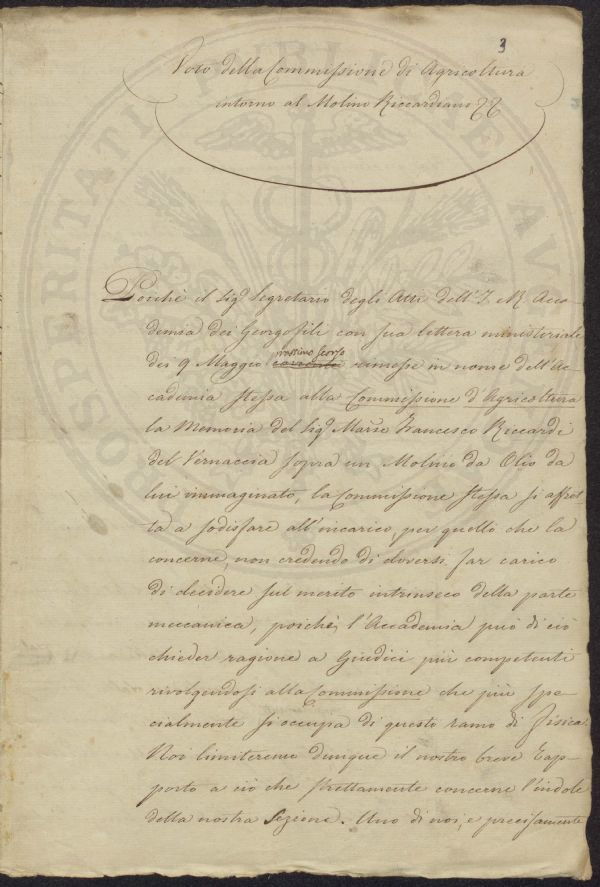 3
Voto della Commissione di Agricoltura
intorno al Molino Riccardiano
Poichè il Sigr Segretario degli Atti dell'I. e R. Acca-
demia dei Georgofili con sua lettera ministeriale
dei 9 Maggio corrente prossimo scorso rimesse in nome dell'Ac-
cademia stessa alla Commissione d'Agricoltura
la Memoria del Sigr Marse Francesco Riccardi
del Vernaccia sopra un Molino da Olio da
lui immaginato, la Commissione stessa si affret-
ta a sodisfare all'incarico per quello che la
concerne, non credendo di doversi far carico
di decidere sul merito intrinseco della parte
meccanica, poichè l'Accademia può di ciò
chieder ragione a Giudici più competenti
rivolgendosi alla Commissione che più spe-
cialmente si occupa di questo ramo di fisica.
Noi limiteremo dunque il nostro breve Rap-
porto a ciò che strettamente concerne l'indole
della nostra Sezione. Uno di noi, e precisamente
PROSPERITATI PUBLICAE AU